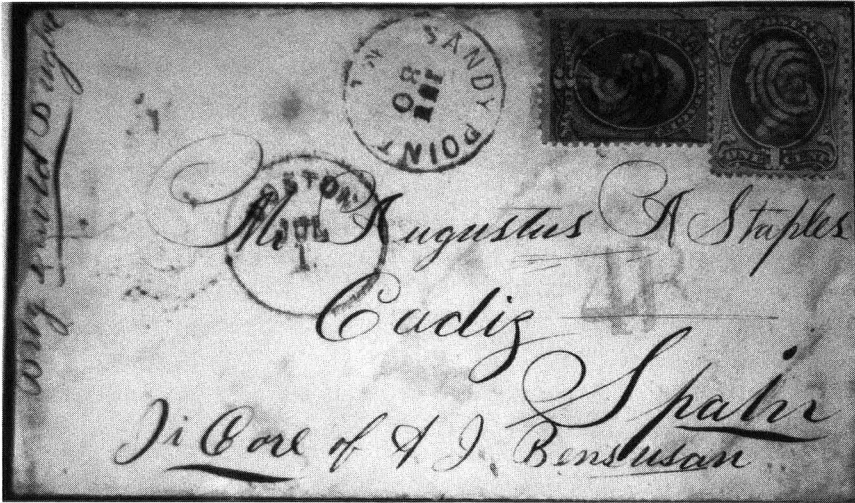 SANDY POINT
30
BOSTON
JUL
1
ONE CENT
Mr Augustus A Staples
4R
Cadiz
Spain
In Care of A J. Bensusan